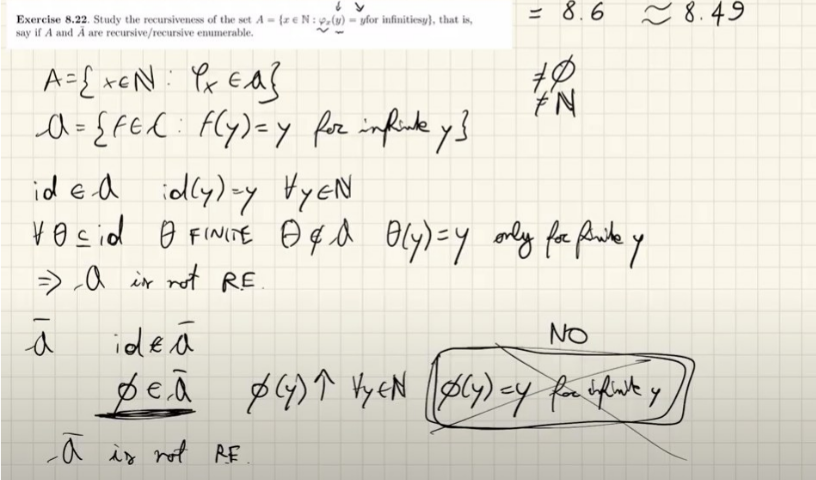 Exercise 8.22. Study the recursiveness of the set A = {x ∈ ℕ : φₓ(y) = yfor infinitiesy}, that is,
say if A and Ā are recursive/recursive enumerable.
= 8.6 ≈ 8.49
A = { x ∈ ℕ : φₓ ∈ 𝒜 }
≠ ∅
≠ ℕ
𝒜 = { f ∈ C : f(y) = y for infinite y }
id ∈ 𝒜 id(y) = y ∀y ∈ ℕ
∀ θ ⊆ id θ FINITE θ ∉ 𝒜 θ(y) = y only for finite y
⇒ 𝒜 is not RE.
𝒜̄ id ∉ 𝒜̄
NO
∅ ∈ 𝒜̄ ∅(y)↑ ∀y ∈ ℕ ∅(y) = y for infinite y
𝒜̄ is not RE.